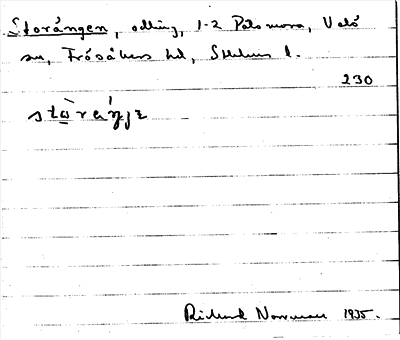 Storängen, odling, 1-2 Polsmora, Valö
sn, Frösåkers hd, Sthlms l.
230
stòráŋjɛ
Rickard Norrman 1935.